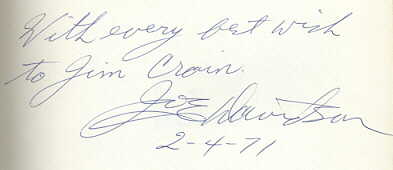 With every best wish
to Jim Crain.
Joe Davidson
2-4-71